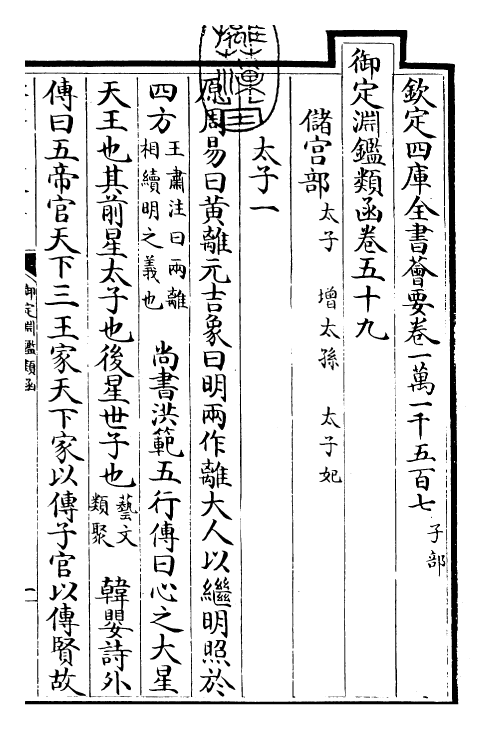 欽定四庫全書薈要卷一萬一千五百七 子部
御定淵鑑類函卷五十九
儲宮部 太子 增太孫 太子妃
太子一
原周易曰黃離元吉象曰明兩作離大人以繼明照於
四方 王肅注曰兩離相續明之義也 尚書洪範五行傳曰心之大星
天王也其前星太子也後星世子也 藝文類聚 韓嬰詩外
傳曰五帝官天下三王家天下家以傳子官以傳賢故
御定淵鑑類函
一